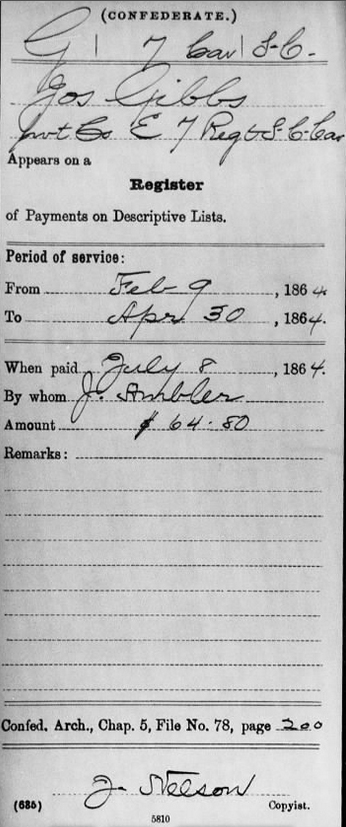 (CONFEDERATE.)
G | 7 Cav | S.C.
Jos Gibbs
pvt Co E 7 Regt S.C. Cav
Appears on a
Register
of Payments on Descriptive Lists.
Period of service:
From Feb 9, 1864.
To Apr 30, 1864.
When paid July 8, 1864.
By whom J. Ambler
Amount $ 64.80
Remarks:
Confed. Arch., Chap. 5, File No. 78, page 200
J. Nelson
(635) Copyist.
5810